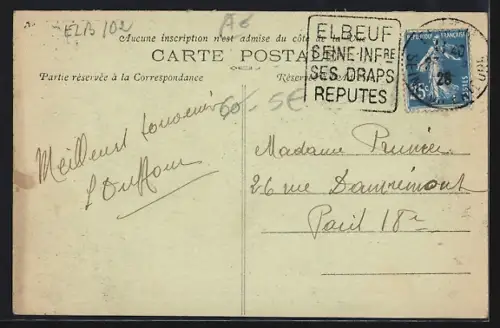 ELB 102
A6
Aucune inscription n'est admise du côté de la
CARTE POSTALE
Partie réservée à la Correspondance
Réservé
60.- 5€
ELBEUF
SEINE-INFRE
SES DRAPS
REPUTES
REPUBLIQUE FRANÇAISE
25c
POSTES
26
Meilleurs souvenirs
Madame Prunier
26 rue Damrémont
Paris 18e